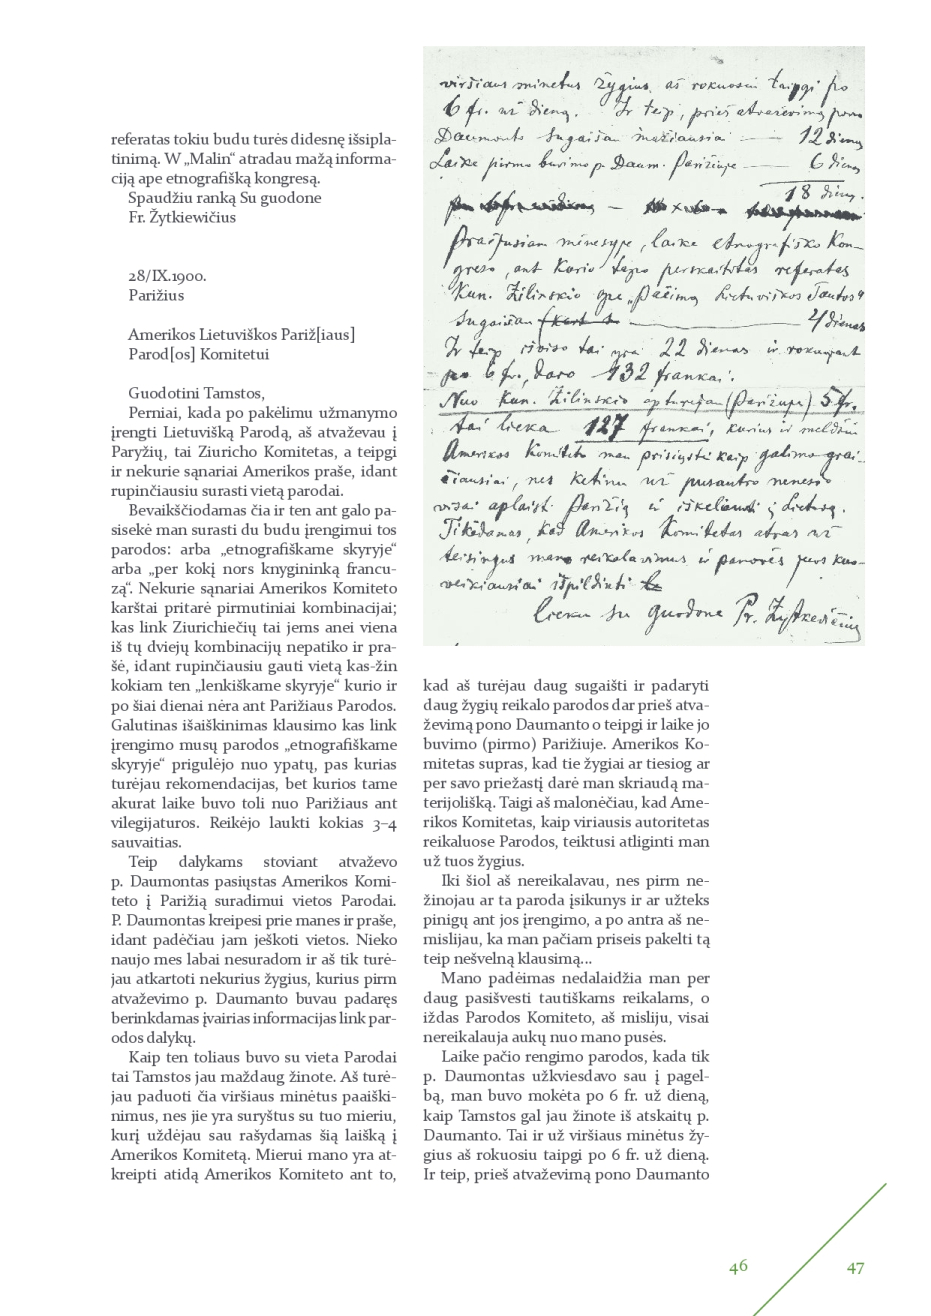 referatas tokiu budu turės didesnę išsipla-
tinimą. W „Malin“ atradau mažą informa-
ciją ape etnografišką kongresą.
Spaudžiu ranką Su guodone
Fr. Žytkiewičius
28/IX.1900.
Parižius
Amerikos Lietuviškos Pariž[iaus]
Parod[os] Komitetui
Guodotini Tamstos,
Perniai, kada po pakėlimu užmanymo
įrengti Lietuvišką Parodą, aš atvaževau į
Paryžių, tai Ziuricho Komitetas, a teipgi
ir nekurie sąnariai Amerikos praše, idant
rupinčiausiu surasti vietą parodai.
Bevaikščiodamas čia ir ten ant galo pa-
sisekė man surasti du budu įrengimui tos
parodos: arba „etnografiškame skyryje“
arba „per kokį nors knygininką francu-
zą“. Nekurie sąnariai Amerikos Komiteto
karštai pritarė pirmutiniai kombinacijai;
kas link Ziurichiečių tai jems anei viena
iš tų dviejų kombinacijų nepatiko ir pra-
šė, idant rupinčiausiu gauti vietą kas-žin
kokiam ten „lenkiškame skyryje“ kurio ir
po šiai dienai nėra ant Parižiaus Parodos.
Galutinas išaiškinimas klausimo kas link
įrengimo musų parodos „etnografiškame
skyryje“ prigulėjo nuo ypatų, pas kurias
turėjau rekomendacijas, bet kurios tame
akurat laike buvo toli nuo Parižiaus ant
vilegijaturos. Reikėjo laukti kokias 3–4
sauvaitias.
Teip dalykams stoviant atvaževo
p. Daumontas pasiųstas Amerikos Komi-
teto į Parižią suradimui vietos Parodai.
P. Daumontas kreipesi prie manes ir praše,
idant padėčiau jam ješkoti vietos. Nieko
naujo mes labai nesuradom ir aš tik turė-
jau atkartoti nekurius žygius, kurius pirm
atvaževimo p. Daumanto buvau padaręs
berinkdamas įvairias informacijas link par-
odos dalykų.
Kaip ten toliaus buvo su vieta Parodai
tai Tamstos jau maždaug žinote. Aš turė-
jau paduoti čia viršiaus minėtus paaiški-
nimus, nes jie yra suryštus su tuo mieriu,
kurį uždėjau sau rašydamas šią laišką į
Amerikos Komitetą. Mierui mano yra at-
kreipti atidą Amerikos Komiteto ant to,
viršiaus minetus žygius aš rokuosiu taipgi po
6 fr. už dieną. Ir teip, prieš atvaževimą pono
Daumonto sugaišau mažiausia — 12 dienų
Laike pirmo buvimo p. Daum. Parižiuje — 6 dienų
18 dienų.
Praėjusiam mėnesyje, laike etnografiško Kon-
greso, ant kurio tapo perskaitytas referatas
Kun. Žilinskio ape „Pačimą Lietuviškos Tautos“
sugaišau — 4 dienas
Ir teip išviso tai yra 22 dienas ir rokuojant
po 6 fr., daro 132 frankai.
Nuo Kun. Žilinskio apturėjau (Parižiuje) 5 fr.
tai lieka 127 frankai, kurius ir meldžiu
Amerikos Komiteto man prisiųsti kaip galima grai-
čiausiai, nes ketinu už pusantro menesio
visai aplaist Parižią ir iškeliauti į Lietuvą.
Tikėdamas, kad Amerikos Komitetas atras už
teisingus mano reikalavimus ir panorės juos kuo-
veikiausiai išpildinti
lieku su guodone Pr. Žytkevičius
kad aš turėjau daug sugaišti ir padaryti
daug žygių reikalo parodos dar prieš atva-
ževimą pono Daumanto o teipgi ir laike jo
buvimo (pirmo) Parižiuje. Amerikos Ko-
mitetas supras, kad tie žygiai ar tiesiog ar
per savo priežastį darė man skriaudą ma-
terijolišką. Taigi aš malonėčiau, kad Ame-
rikos Komitetas, kaip viriausis autoritetas
reikaluose Parodos, teiktusi atliginti man
už tuos žygius.
Iki šiol aš nereikalavau, nes pirm ne-
žinojau ar ta paroda įsikunys ir ar užteks
pinigų ant jos įrengimo, a po antra aš ne-
mislijau, ka man pačiam priseis pakelti tą
teip nešvelną klausimą...
Mano padėimas nedalaidžia man per
daug pasišvesti tautiškams reikalams, o
iždas Parodos Komiteto, aš misliju, visai
nereikalauja aukų nuo mano pusės.
Laike pačio rengimo parodos, kada tik
p. Daumontas užkviesdavo sau į pagel-
bą, man buvo mokėta po 6 fr. už dieną,
kaip Tamstos gal jau žinote iš atskaitų p.
Daumanto. Tai ir už viršiaus minėtus žy-
gius aš rokuosiu taipgi po 6 fr. už dieną.
Ir teip, prieš atvaževimą pono Daumanto
46
47